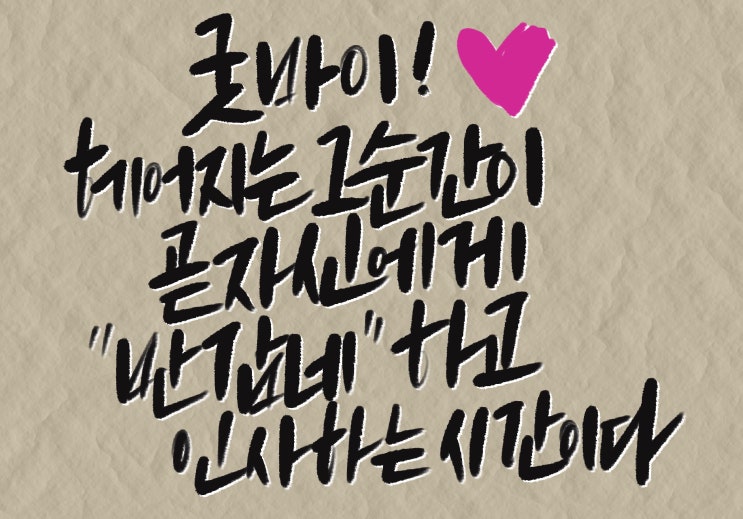 굿바이!
헤어지는 그 순간이
곧 자신에게
"반갑네" 하고
인사하는 시간이다